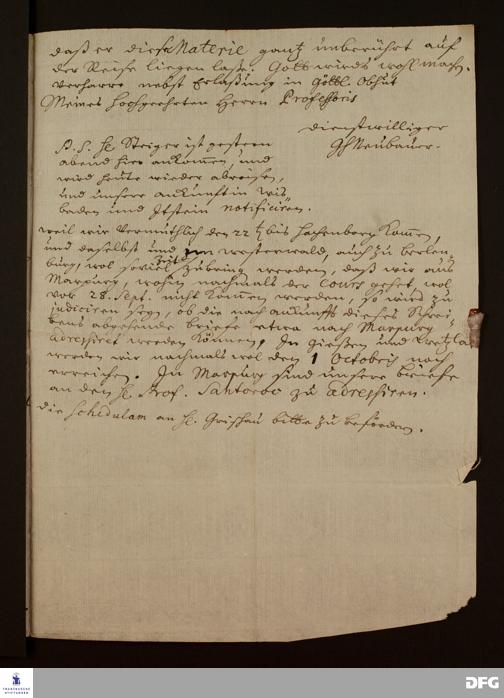 daß er diese Materie gantz unberührt auf
der Reise liegen laße. Gott wirds wohl machen.
verharre nebst Erlaßung in Göttl. Obhut
Meines Hochgeehrten Herrn Professoris
dienstwilliger
GHNeubauer.
P. S. H. Steiger ist gestern
abend hier ankommen, und
wird heute wieder abreisen,
und unsere ankunft in Wis
baden und Itstein notificiren.
weil wir vermuthlich den 22t. bis Hachenberg kommen,
und daselbst und im westerwald, auch zu berlen
burg, wol soviel Zeit zubringen werden, daß wir aus
Marpurg, wohin nachmals der Cours gehet, wol
vor 28. Sept. nicht kommen werden, so wird zu
judiciren seyn, ob die nach ankunfft dieses Schrei-
bens abgehende briefe etwa nach Marpurg
adressiret werden können, In Gießen und Wetzlar
werden wir nachmals wol den 1 Octobris noch
erreichen. In Marpurg sind unsere briefe
an den H. Prof. Santoroc zu adressiren.
die Schedulam an H. Grischau bitte zu befördern.
FRANCKESCHE
STIFTUNGEN
DFG